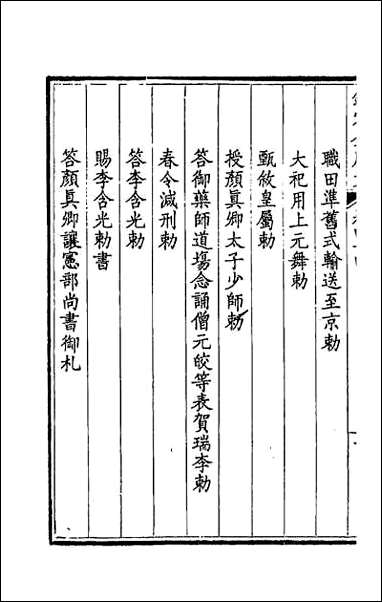 職田準舊式輸送至京勅
大祀用上元舞勅
甄敘皇屬勅
授顏眞卿太子少師勅
答御藥師道場念誦僧元皎等表賀瑞李勅
春令減刑勅
答李含光勅
賜李含光勅書
答顏眞卿讓憲部尚書御札